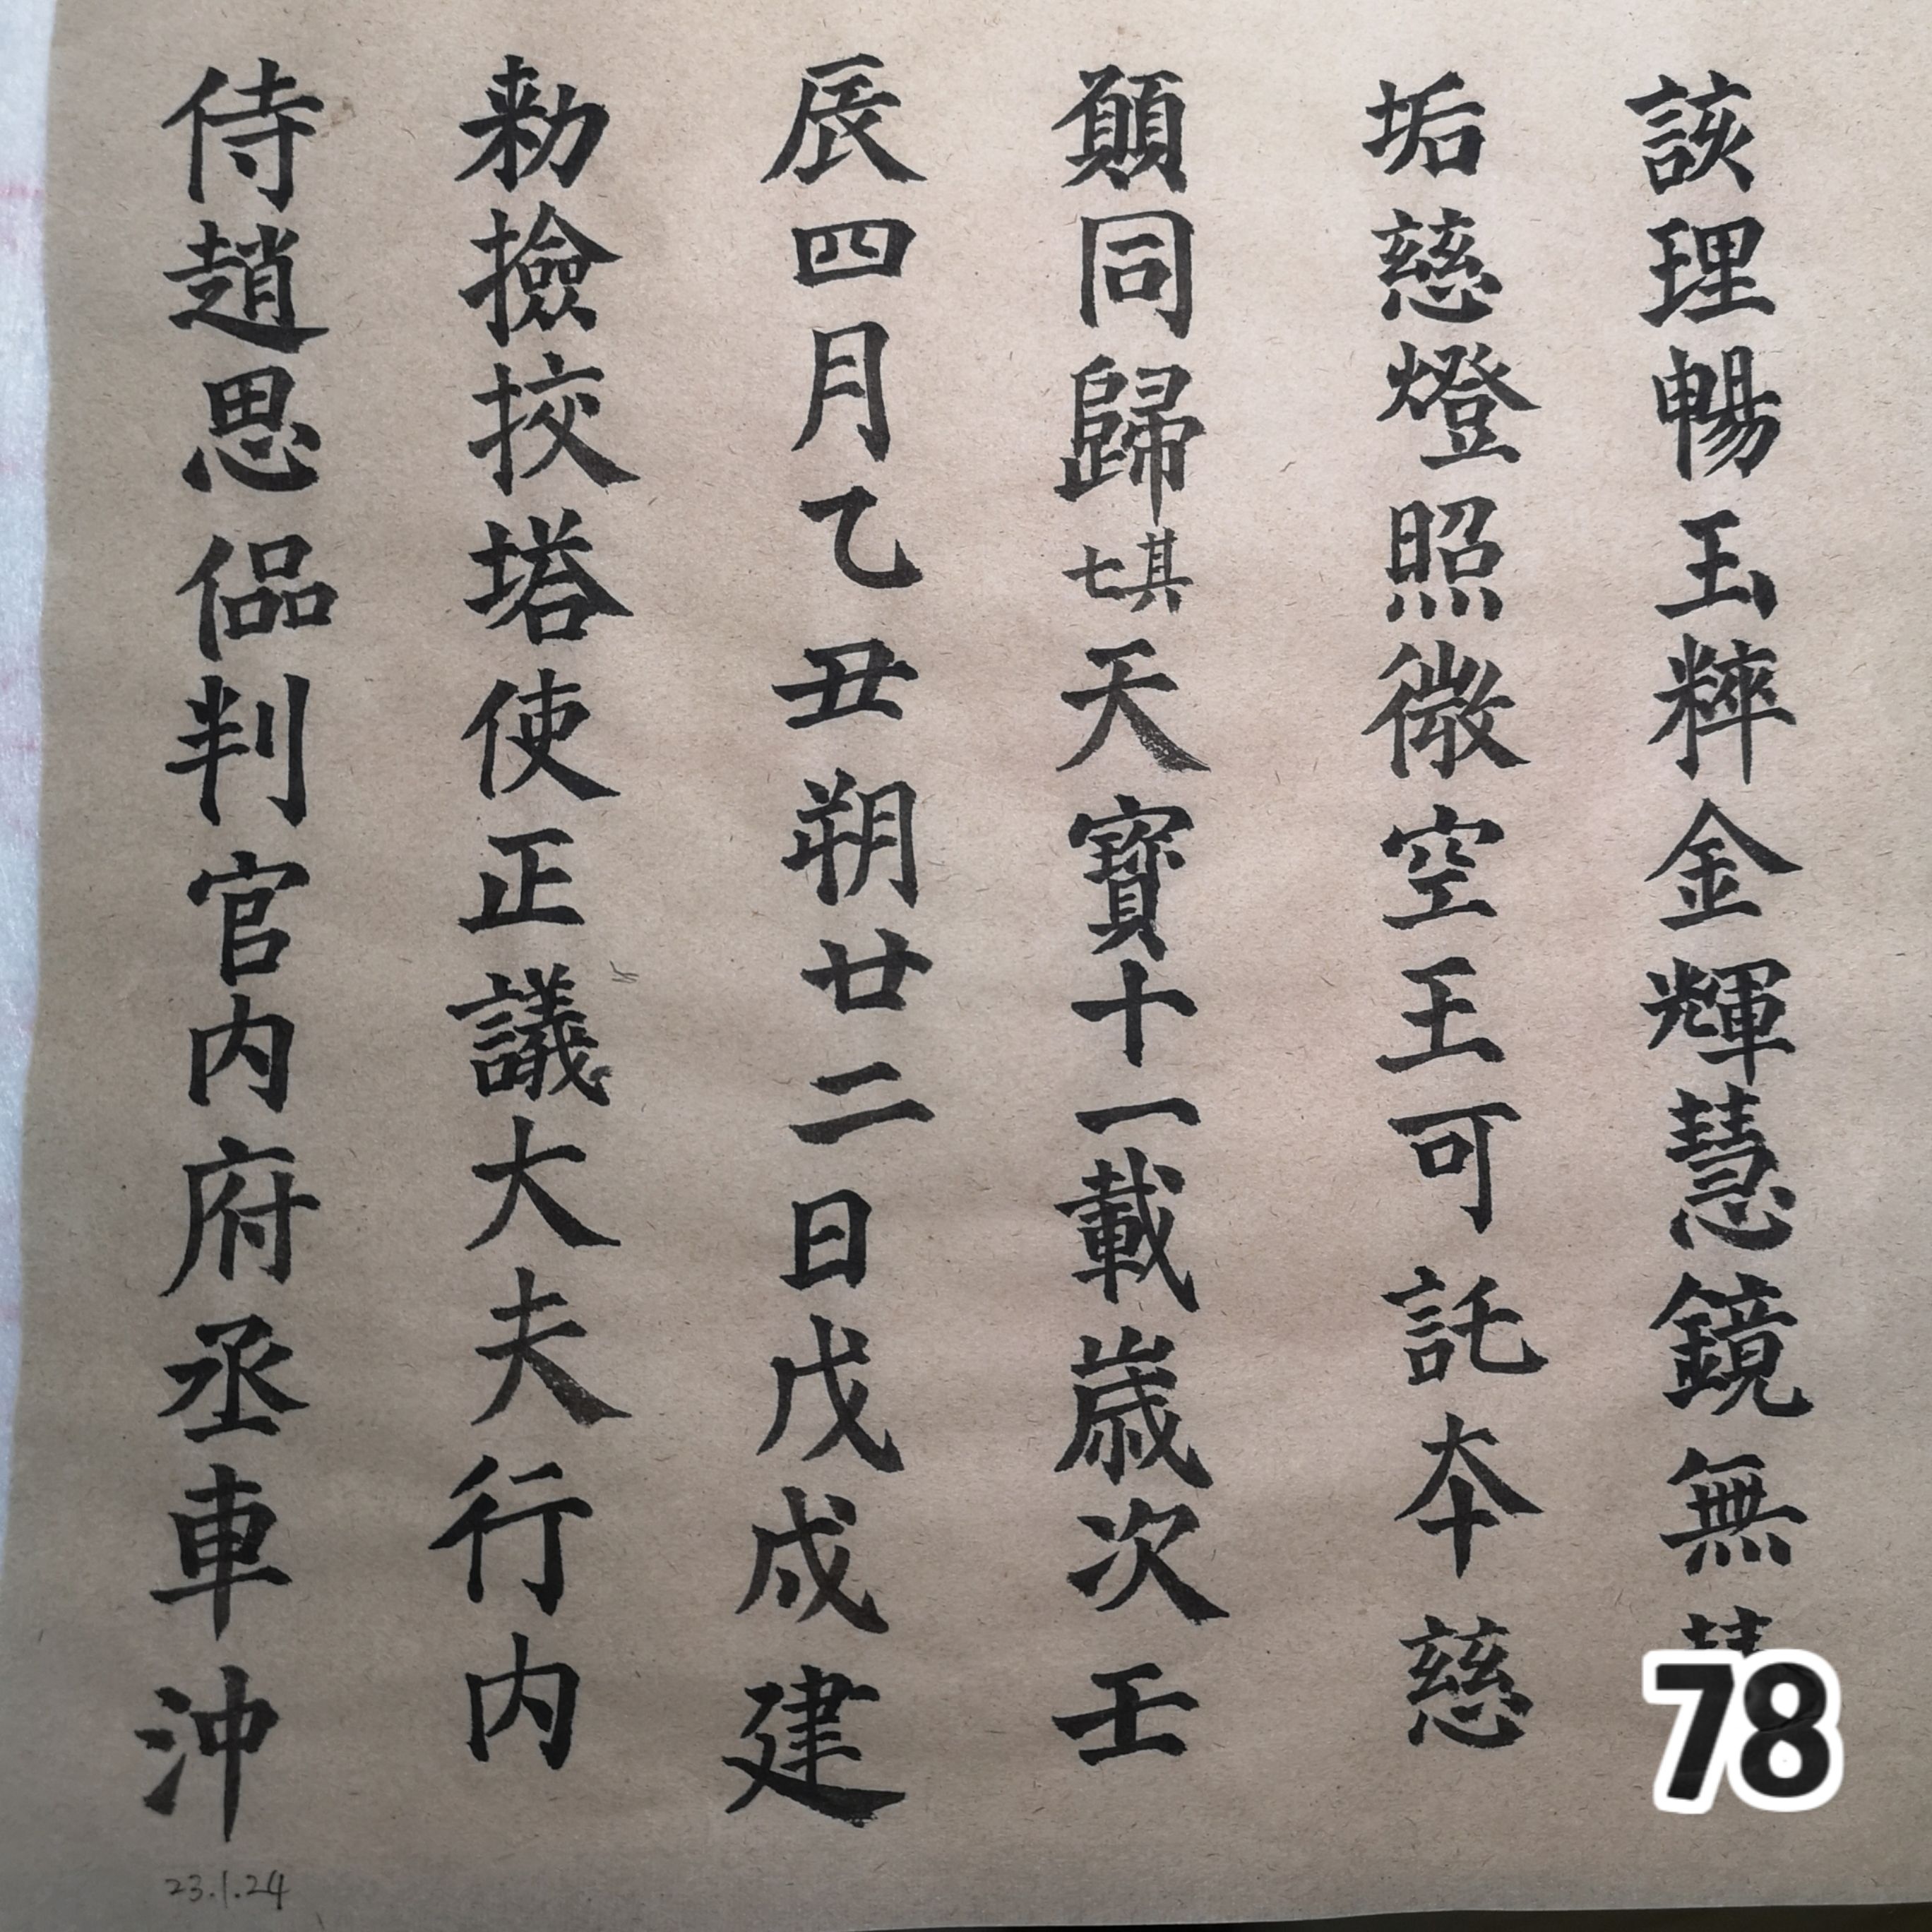 該理暢玉粹金輝慧鏡無
垢慈燈照微空王可託夲慈
願同歸其七天寶十一載歲次壬
辰四月乙丑朔廿二日戊戌建
勅撿挍塔使正議大夫行内
侍趙思偘判官内府丞車沖
23.1.24
78